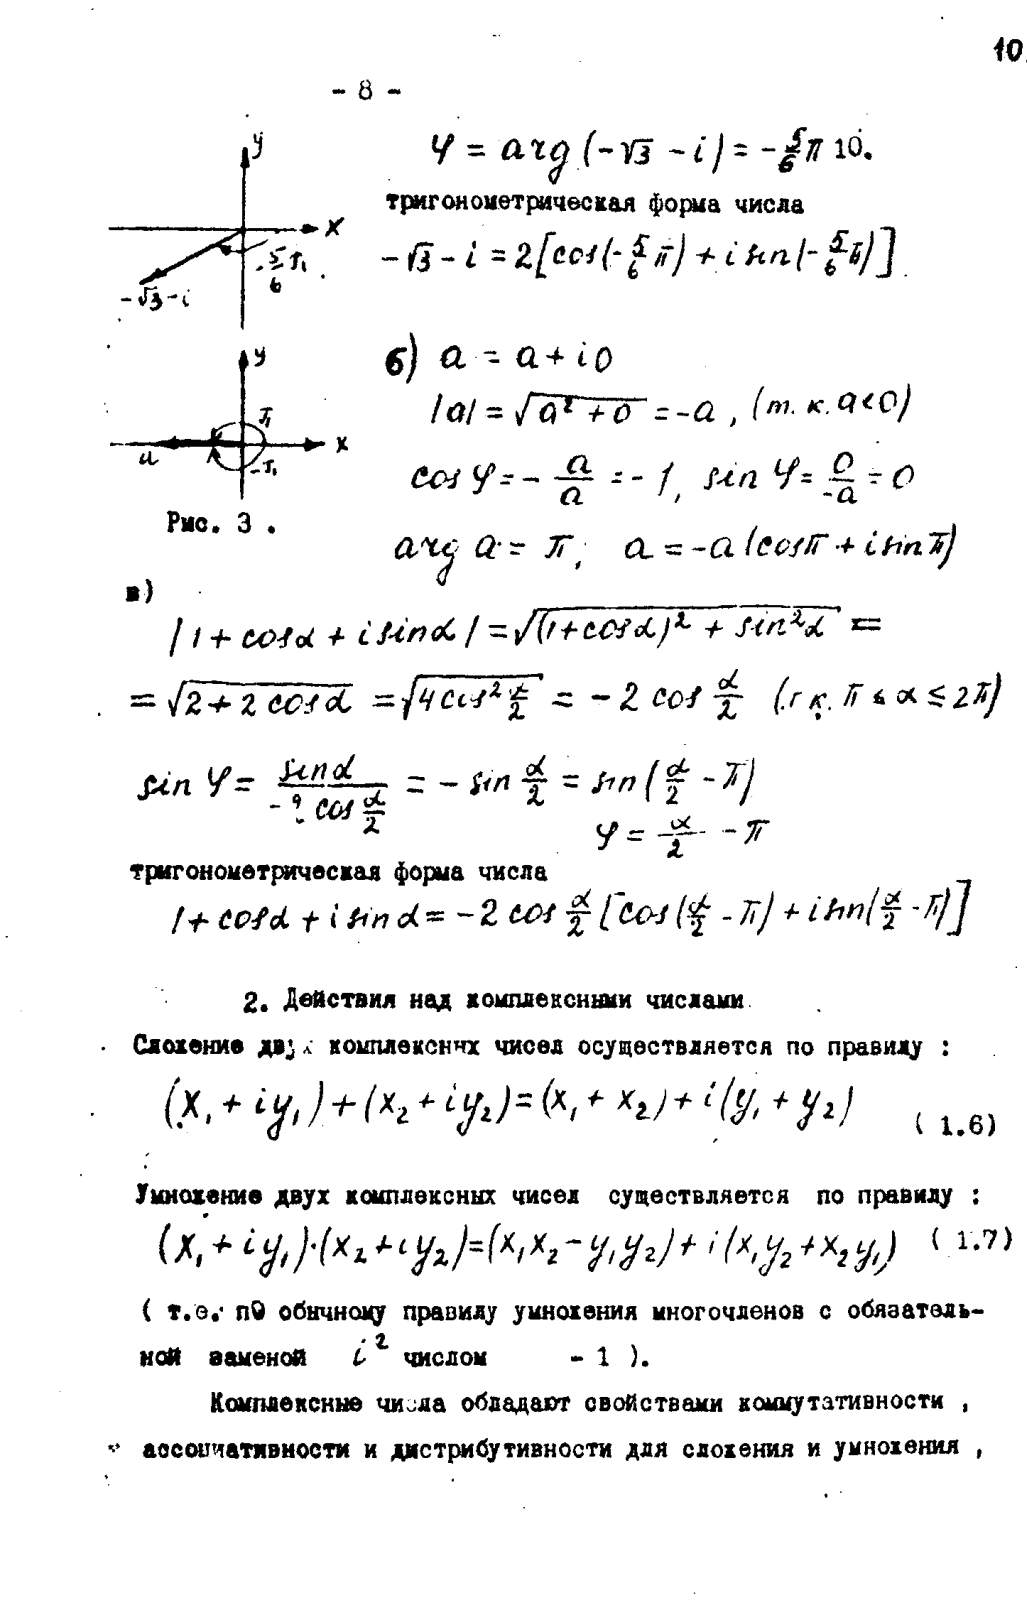 10.
- 8 -
φ = arg (-√3 - i) = -5/6 π 10.
тригонометрическая форма числа
-√3 - i = 2[cos(-5/6 π) + i sin(-5/6 π)].
y
x
-5/6 π
-√3 - i
y
π
x
a
-π
Рис. 3 .
б) a = a + i0
|a| = √(a² + 0) = -a , (т. к. a<0)
cos φ = - a/a = -1, sin φ = 0/-a = 0
arg a = π ; a = -a (cos π + i sin π)
в)
| 1 + cos α + i sin α | = √((1+cos α)² + sin² α) =
= √(2 + 2 cos α) = √(4 cos² α/2) = - 2 cos α/2 (т.к. π ≤ α ≤ 2π)
sin φ = sin α / -2 cos α/2 = - sin α/2 = sin (α/2 - π)
φ = α/2 - π
тригонометрическая форма числа
1 + cos α + i sin α = -2 cos α/2 [cos (α/2 - π) + i sin (α/2 - π)]
2. Действия над комплексными числами.
Сложение двух комплексных чисел осуществляется по правилу :
(x₁ + iy₁) + (x₂ + iy₂) = (x₁ + x₂) + i (y₁ + y₂) ( 1.6)
Умножение двух комплексных чисел существляется по правилу :
(x₁ + iy₁)·(x₂ + iy₂) = (x₁x₂ - y₁y₂) + i (x₁y₂ + x₂y₁) ( 1.7)
( т.е. по обычному правилу умножения многочленов с обязатель-
ной заменой i² числом - 1 ).
Комплексные числа обладают свойствами коммутативности ,
ассоциативности и дистрибутивности для сложения и умножения ,